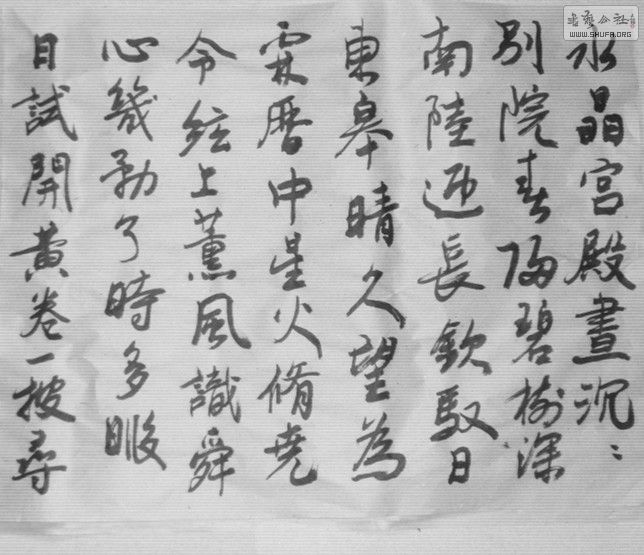 水晶宮殿晝沉〻
別院春歸碧樹深
南陸迎長欽馭日
東皋晴久望為
霖曆中星火脩堯
令絃上薰風識舜
心幾了時多暇
日試開黃卷一披尋
書藝公社
WWW.SHUFA.ORG